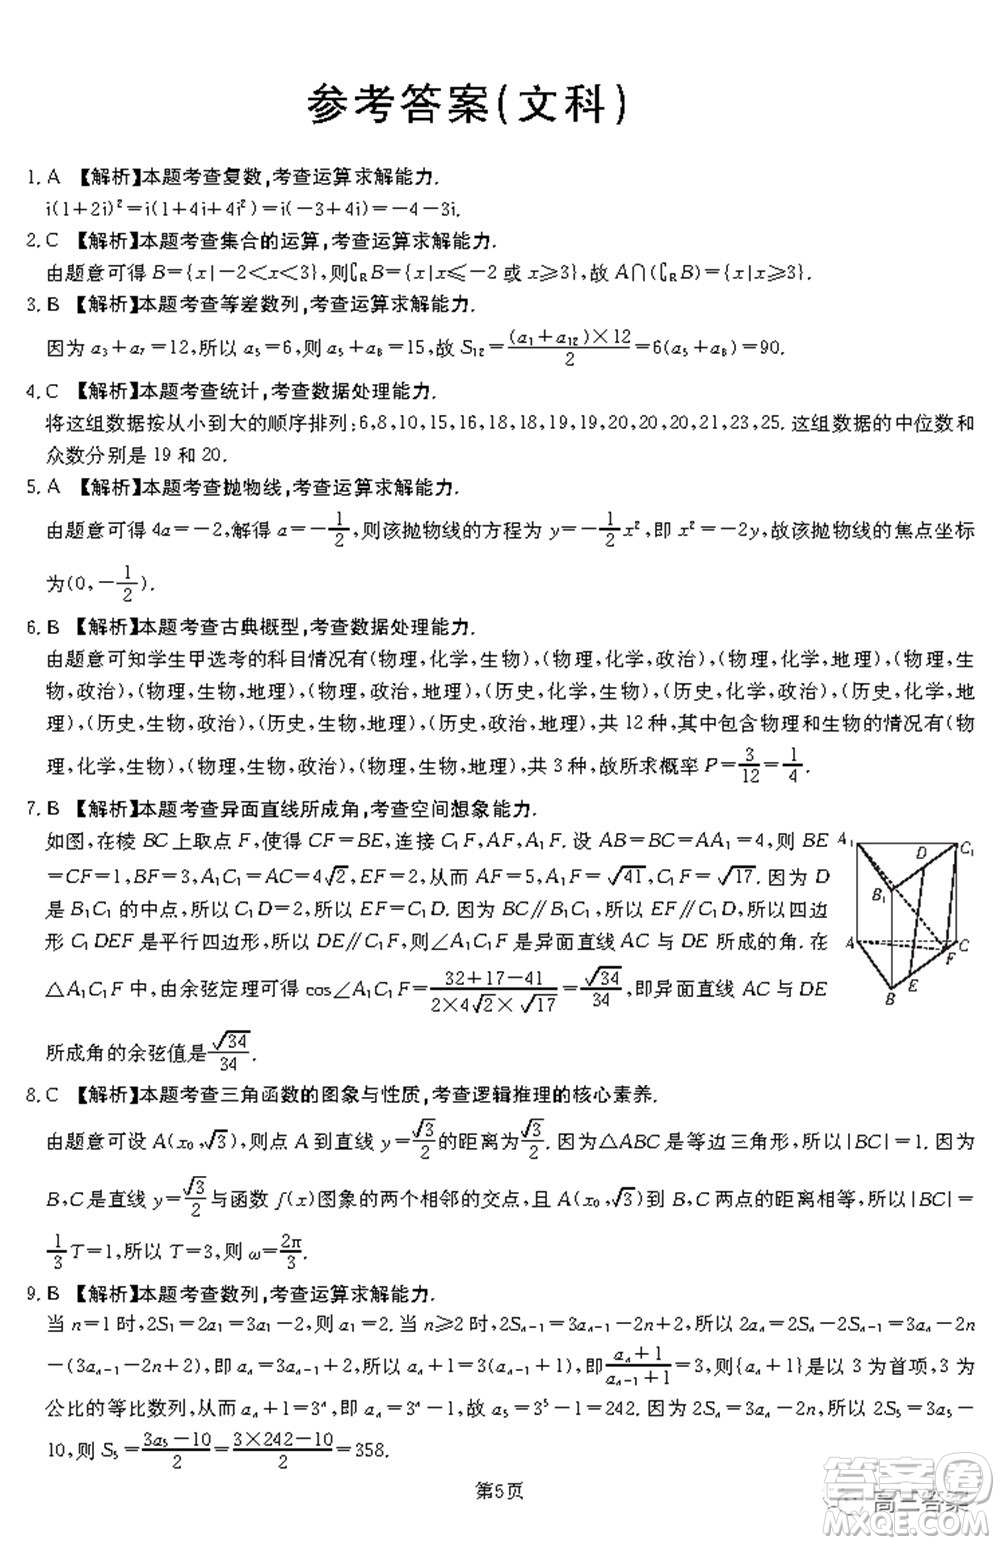 参考答案(文科)
1. A 【解析】本题考查复数,考查运算求解能力.
i(1+2i)²=i(1+4i+4i²)=i(-3+4i)=-4-3i.
2. C 【解析】本题考查集合的运算,考查运算求解能力.
由题意可得 B={x|-2<x<3},则∁RB={x|x⩽-2 或 x⩾3},故 A∩(∁RB)={x|x⩾3}.
3. B 【解析】本题考查等差数列,考查运算求解能力.
因为 a₃+a₇=12,所以 a₅=6,则 a₅+a₈=15,故 S₁₂=(a₁+a₁₂)×12/2=6(a₅+a₈)=90.
4. C 【解析】本题考查统计,考查数据处理能力.
将这组数据按从小到大的顺序排列:6,8,10,15,16,18,18,19,19,20,20,20,21,23,25. 这组数据的中位数和
众数分别是 19 和 20.
5. A 【解析】本题考查抛物线,考查运算求解能力.
由题意可得 4a=-2,解得 a=-1/2,则该抛物线的方程为 y=-1/2x²,即 x²=-2y,故该抛物线的焦点坐标
为(0,-1/2).
6. B 【解析】本题考查古典概型,考查数据处理能力.
由题意可知学生甲选考的科目情况有(物理,化学,生物),(物理,化学,政治),(物理,化学,地理),(物理,生
物,政治),(物理,生物,地理),(物理,政治,地理),(历史,化学,生物),(历史,化学,政治),(历史,化学,地
理),(历史,生物,政治),(历史,生物,地理),(历史,政治,地理),共 12 种,其中包含物理和生物的情况有(物
理,化学,生物),(物理,生物,政治),(物理,生物,地理),共 3 种,故所求概率 P=3/12=1/4.
7. B 【解析】本题考查异面直线所成角,考查空间想象能力.
如图,在棱 BC 上取点 F,使得 CF=BE,连接 C₁F,AF,A₁F. 设 AB=BC=AA₁=4,则 BE
=CF=1,BF=3,A₁C₁=AC=4√2,EF=2,从而 AF=5,A₁F=√41,C₁F=√17. 因为 D
是 B₁C₁ 的中点,所以 C₁D=2,所以 EF=C₁D. 因为 BC∥B₁C₁,所以 EF∥C₁D,所以四边
形 C₁DEF 是平行四边形,所以 DE∥C₁F,则∠A₁C₁F 是异面直线 AC 与 DE 所成的角. 在
△A₁C₁F 中,由余弦定理可得 cos∠A₁C₁F=(32+17-41)/(2×4√2×√17)=√34/34,即异面直线 AC 与 DE
所成角的余弦值是√34/34.
A₁ D C₁
B₁
A C
F
E
B
8. C 【解析】本题考查三角函数的图象与性质,考查逻辑推理的核心素养.
由题意可设 A(x₀,√3),则点 A 到直线 y=√3/2的距离为√3/2. 因为△ABC 是等边三角形,所以|BC|=1. 因为
B,C 是直线 y=√3/2与函数 f(x)图象的两个相邻的交点,且 A(x₀,√3)到 B,C 两点的距离相等,所以|BC|=
1/3T=1,所以 T=3,则 ω=2π/3.
9. B 【解析】本题考查数列,考查运算求解能力.
当 n=1 时,2S₁=2a₁=3a₁-2,则 a₁=2. 当 n⩾2 时,2Sₙ₋₁=3aₙ₋₁-2n+2,则 2aₙ=2Sₙ-2Sₙ₋₁=3aₙ-2n
-(3aₙ₋₁-2n+2),即 aₙ=3aₙ₋₁+2,所以 aₙ+1=3(aₙ₋₁+1),即(aₙ+1)/(aₙ₋₁+1)=3,则{aₙ+1}是以 3 为首项,3 为
公比的等比数列,从而 aₙ+1=3ⁿ,即 aₙ=3ⁿ-1,故 a₅=3⁵-1=242. 因为 2Sₙ=3aₙ-2n,所以 2S₅=3a₅-
10,则 S₅=(3a₅-10)/2=(3×242-10)/2=358.
第5页
答案卷
高三答案
MXQE.COM